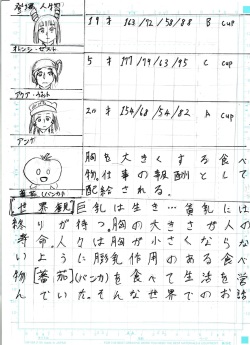 登場人物
19才 163/92/58/88 B cup
オレンジ・ゼスト
177/99/63/95 C cup
20才 154/68/54/82 A cup
アンヅ
胸を大きくする食べ
物。仕事の報酬として
配給される。
蕃茄(バンカ)
【世界観】巨乳は生き…貧乳には
終りが待つ。胸の大きさが人の
寿命。人々は胸が小さくならな
いように膨乳作用のある食べ
物[蕃茄](バンカ)を食べて生活を営
んでいた。そんな世界でのお話